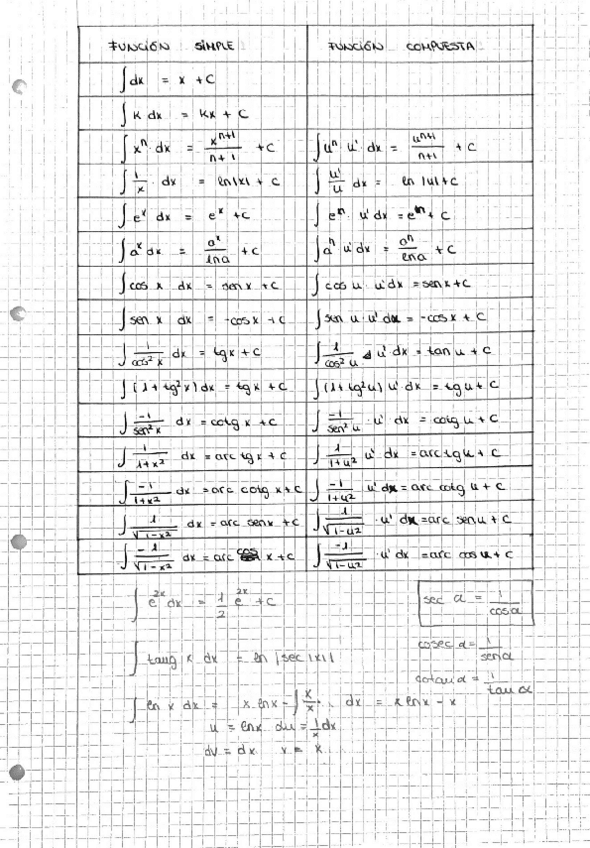 FUNCIÓN SIMPLE FUNCIÓN COMPUESTA
∫ dx = x + C
∫ K dx = Kx + C
∫ xⁿ · dx = xⁿ⁺¹/(n+1) + C ∫ uⁿ · u' · dx = uⁿ⁺¹/(n+1) + C
∫ 1/x · dx = ln|x| + C ∫ u'/u dx = ln |u| + C
∫ eˣ dx = eˣ + C ∫ eⁿ · u' dx = eⁿ + C
∫ aˣ dx = aˣ/lna + C ∫ aⁿ u' dx = aⁿ/lna + C
∫ cos x dx = sen x + C ∫ cos u · u' dx = sen x + C
∫ sen x dx = -cos x + C ∫ sen u · u' dx = -cos x + C
∫ 1/cos² x dx = tg x + C ∫ 1/cos² u u' dx = tan u + C
∫ (1 + tg² x) dx = tg x + C ∫ (1 + tg² u) u' dx = tg u + C
∫ -1/sen² x dx = cotg x + C ∫ -1/sen² u · u' dx = cotg u + C
∫ 1/(1+x²) dx = arc tg x + C ∫ 1/(1+u²) u' dx = arc tg u + C
∫ -1/(1+x²) dx = arc cotg x + C ∫ -1/(1+u²) u' dx = arc cotg u + C
∫ 1/√(1-x²) dx = arc sen x + C ∫ 1/√(1-u²) · u' dx = arc sen u + C
∫ -1/√(1-x²) dx = arc cos x + C ∫ -1/√(1-u²) · u' dx = arc cos u + C
∫ e²ˣ dx = 1/2 e²ˣ + C
sec α = 1/cosα
∫ tang x dx = ln |sec|x||
cosec α = 1/senα
cotan α = 1/tan α
∫ ln x dx = x · lnx - ∫ x/x · dx = x lnx - x
u = lnx du = 1/x dx
dv = dx v = x